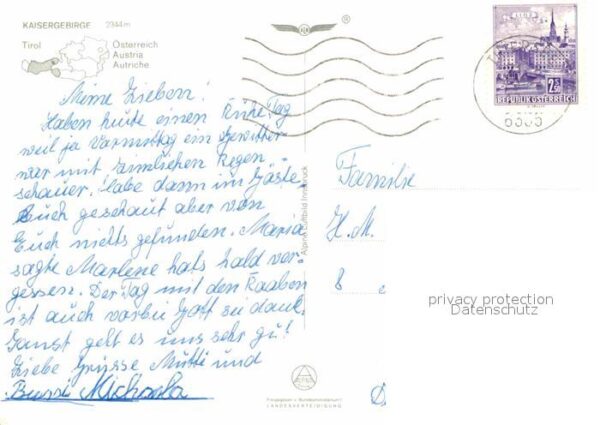 KAISERGEBIRGE 2344m
Tirol
Österreich
Austria
Autriche
Meine Lieben!
Haben heute einen Ruhe Tag
weil ja Vormittag ein Gewitter
war mit ziemlichen Regen
schauer. Habe dann im Gäste
Buch geschaut aber von
Euch nichts gefunden. Maria
sagte Marlene hats hald ver
gessen. Der Tag mit den Raaben
ist auch vorbei Gott sei dank.
Sonst geht es uns sehr gu!
Liebe Grüsse Mutti und
Bussi Michaela
Alpine Luftbild Innsbruck
Freigegeben v. Bundesministerium f.
LANDESVERTEIDIGUNG
LINZ
2.50
REPUBLIK ÖSTERREICH
Familie
H.M.
8
privacy protection
Datenschutz